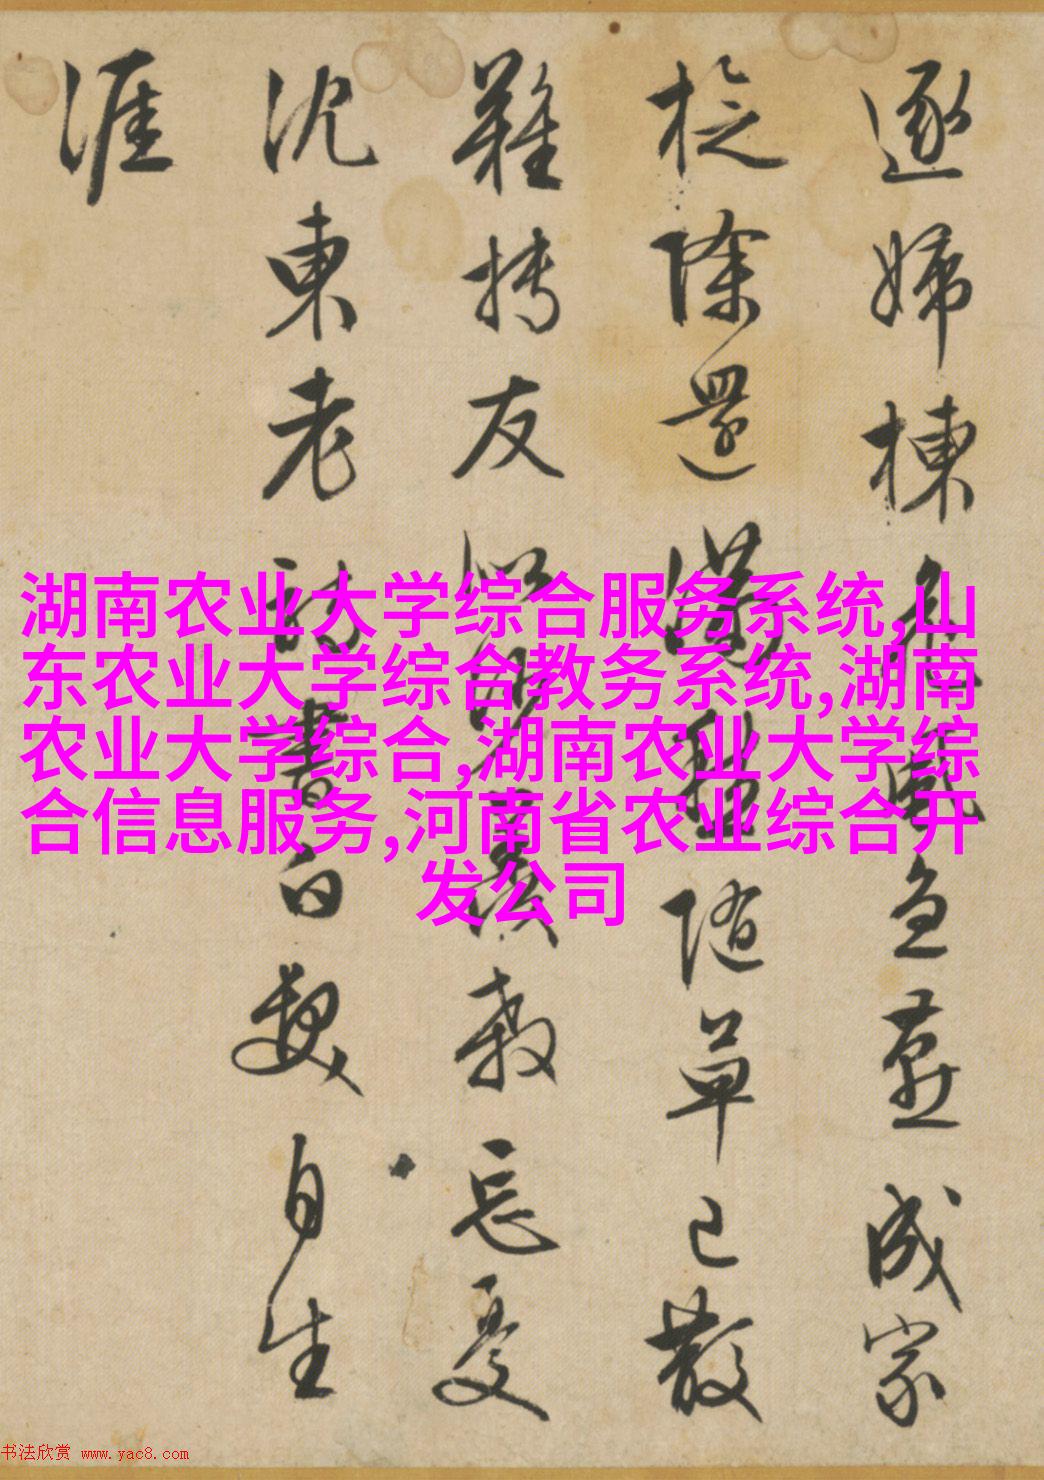 逐婦棟風急燕成家
除還滿隨草已散
難搏友忘憂
沈東老詩書白髮自生
涯
湖南农业大学综合服务系统,山
东农业大学综合教务系统,湖南
农业大学综合,湖南农业大学综
合信息服务,河南省农业综合开
发公司
书法欣赏 www.yac8.com